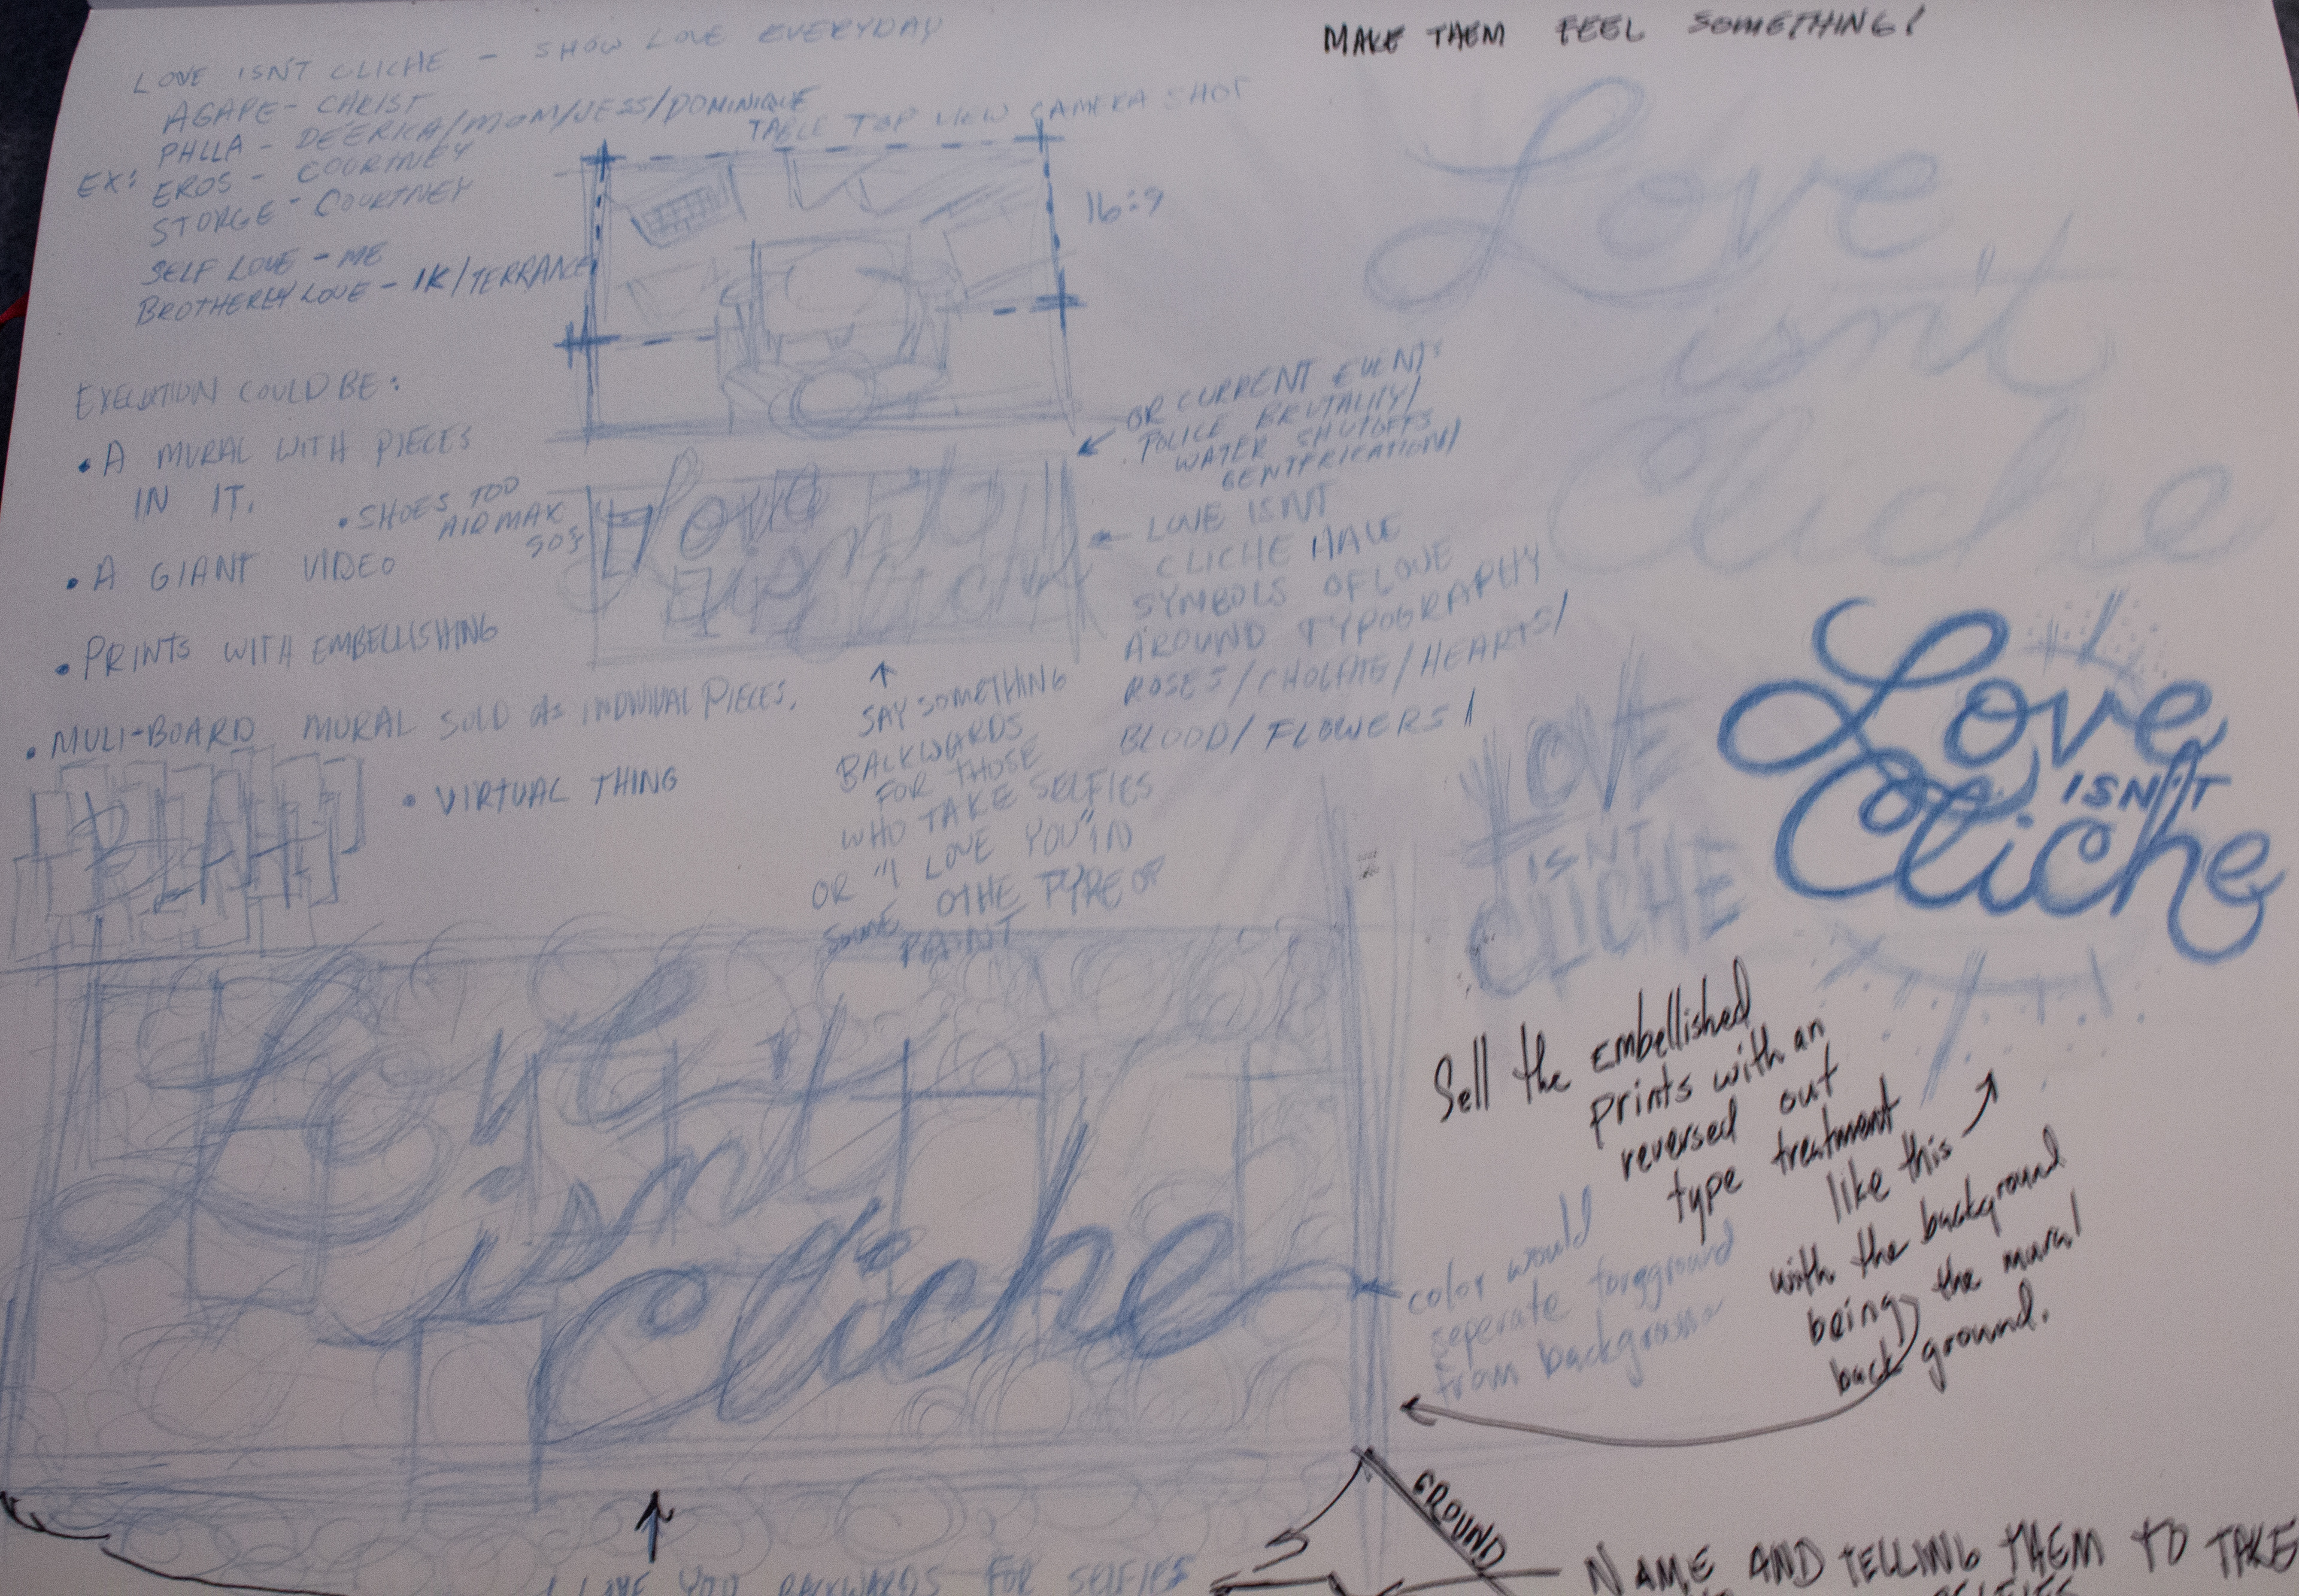 LOVE ISN'T CLICHE - SHOW LOVE EVERYDAY
AGAPE - CHRIST
PHLLA - DE'ERICA/MOM/JESS/DOMINIQUE
EX: EROS - COURTNEY
STORGE - COURTNEY
SELF LOVE - ME
BROTHERLY LOVE - IK/TERRANCE
TABLE TOP VIEW CAMERA SHOT
16:9
MAKE THEM FEEL SOMETHING!
Love
isn't
Cliche
EXECUTION COULD BE:
• A MURAL WITH PIECES
IN IT.
• SHOES TOO
AIRMAX
90s
• A GIANT VIDEO
• PRINTS WITH EMBELLISHING
• MULI-BOARD MURAL SOLD AS INDIVIUAL PIECES.
• VIRTUAL THING
OR CURRENT EVENTS
POLICE BRUTALITY/
WATER SHUTOFFS
GENTRIFICATION/
Love
isn't
Cliche
LOVE ISNT
CLICHE HAVE
SYMBOLS OF LOVE
AROUND TYPOGRAPHY
ROSES/CHOLATE/HEARTS/
BLOOD/FLOWERS/
SAY SOMETHING
BACKWARDS
FOR THOSE
WHO TAKE SELFIES
OR "I LOVE YOU" IN
SOME OTHE TYPE OF
PAINT
LOVE
ISNT
CLICHE
Love
ISN'T
Cliche
Love
isn't
cliche
Sell the embellished
prints with an
reversed out
type treatment
like this
with the background
being the mural
back ground.
color would
seperate forgground
from background
I LOVE YOU BACKWARDS FOR SELFIES
GROUND
NAME AND TELLING THEM TO TAKE
SELFIES